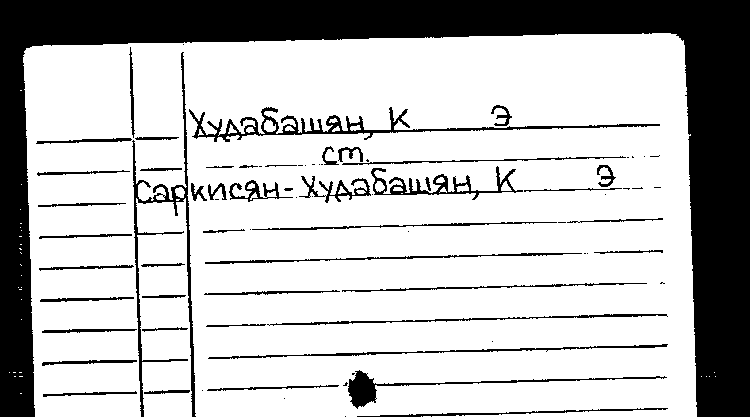 Худабашян, К Э
ст.
Саркисян-Худабашян, К Э